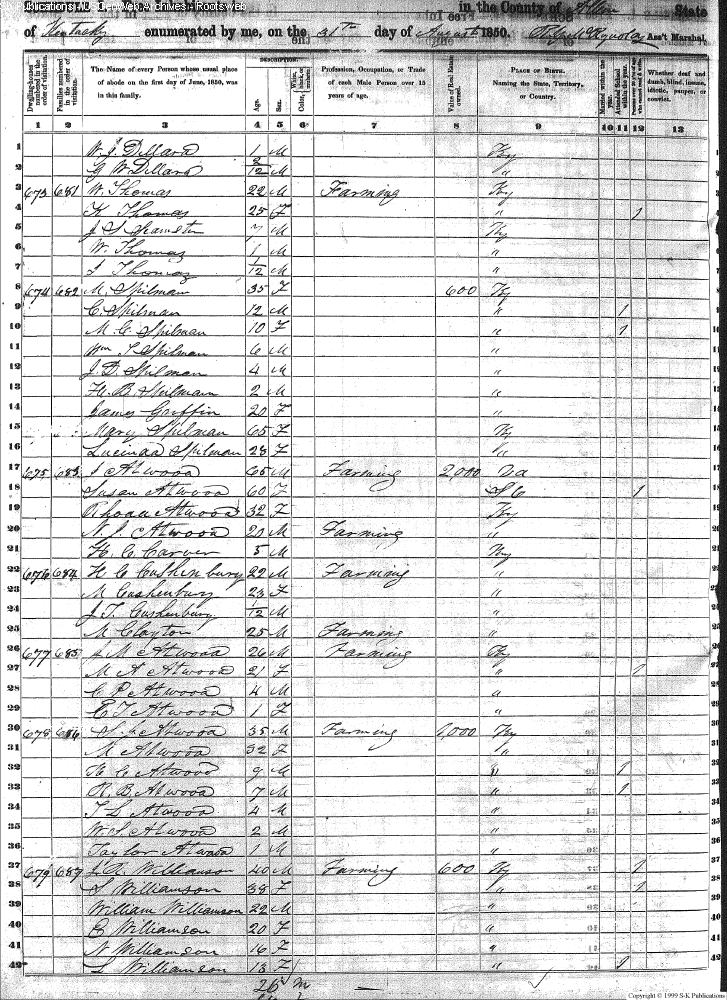 Publications US GenWeb Archives - Rootsweb
in the County of Allen State
of Kentucky enumerated by me, on the 31st day of August 1850. Ass't Marshal.
Dwelling-houses numbered in the order of visitation.
Families numbered in the order of visitation.
The Name of every Person whose usual place of abode on the first day of June, 1850, was in this family.
DESCRIPTION.
Age.
Sex.
Color, White, black, or mulatto.
Profession, Occupation, or Trade of each Male Person over 15 years of age.
Value of Real Estate owned.
PLACE OF BIRTH. Naming the State, Territory, or Country.
Married within the year.
Attended School within the year.
Persons over 20 y'rs of age who cannot read & write.
Whether deaf and dumb, blind, insane, idiotic, pauper, or convict.
1 2 3 4 5 6 7 8 9 10 11 12 13
1 W. J. Dillard 1 M Ky
2 G W Dillard 2/12 M "
3 673 681 W. Thomas 22 M Farming Ky
4 K Thomas 25 F " 1
5 J S 7 M Ky
6 W. Thomas 1 M "
7 J Thomas 1/12 M "
8 674 682 M. Spilman 35 F 600 Ky
9 C. Spilman 12 M " 1
10 M. C. Spilman 10 F " 1
11 Wm T Spilman 6 M "
12 J. D. Spilman 4 M "
13 H. B. Spilman 2 M "
14 James Griffin 20 F "
15 Mary Spilman 65 F Ky
16 Lucinda Spilman 23 F "
17 675 683 J Atwood 65 M Farming 2,000 Va
18 Susan Atwood 60 F S C 1
19 Rhoda Atwood 32 F Ky
20 N. J. Atwood 20 M Farming "
21 H. C. Carver 5 M Ky
22 676 684 H C Cushenbury 22 M Farming "
23 M Cushenbury 23 F "
24 J. T. Cushenbury 1/12 M "
25 M Clayton 25 M Farming "
26 677 685 J. M Atwood 26 M Farming Ky
27 M A Atwood 21 F " 1
28 C P Atwood 4 M "
29 E T Atwood 1 F "
30 678 686 S. J. Atwood 35 M Farming 1,000 Ky
31 M Atwood 32 F "
32 H C Atwood 9 M " 1
33 R. B Atwood 7 M " 1
34 T L Atwood 4 M "
35 W. S Atwood 2 M "
36 Taylor Atwood 1 M "
37 679 687 A. Williamson 40 M Farming 600 Ky 1
38 S Williamson 38 F " 1
39 William Williamson 22 M "
40 E Williamson 20 F "
41 N Williamson 16 F "
42 L Williamson 13 F " 1
26 m
Copyright © 1999 S-K Publications